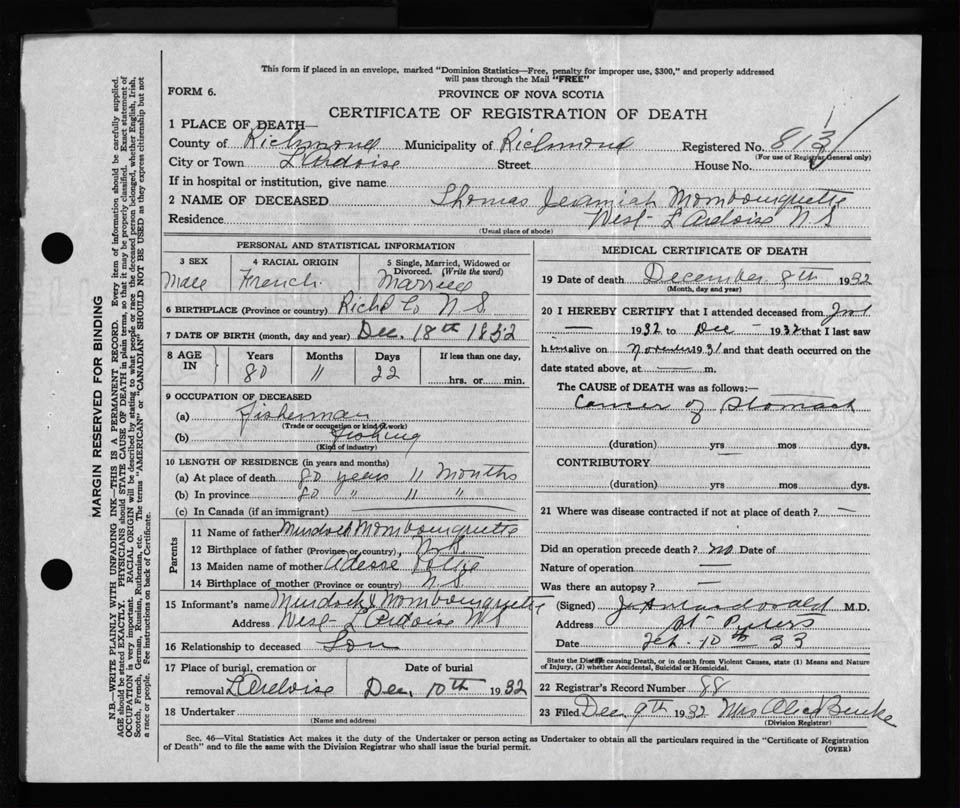 This form if placed in an envelope, marked "Dominion Statistics—Free, penalty for improper use, $300," and properly addressed
will pass through the Mail "FREE"
FORM 6.
PROVINCE OF NOVA SCOTIA
CERTIFICATE OF REGISTRATION OF DEATH
1 PLACE OF DEATH—
County of Richmond Municipality of Richmond Registered No. 813
(For use of Registrar General only)
City or Town L'Ardoise Street House No.
If in hospital or institution, give name
2 NAME OF DECEASED Thomas Jeremiah Mombourquette
Residence West L'Ardoise N S
(Usual place of abode)
PERSONAL AND STATISTICAL INFORMATION
3 SEX 4 RACIAL ORIGIN 5 Single, Married, Widowed or
Divorced. (Write the word)
Male French. Married
6 BIRTHPLACE (Province or country) Richd Co N. S.
7 DATE OF BIRTH (month, day and year) Dec. 18th 1852
8 AGE IN Years Months Days If less than one day,
80 11 22 hrs. or min.
9 OCCUPATION OF DECEASED
(a) Fisherman
(Trade or occupation or kind of work)
(b) Fishing
(Kind of industry)
10 LENGTH OF RESIDENCE (in years and months)
(a) At place of death 80 years 11 Months
(b) In province 80 " 11 "
(c) In Canada (if an immigrant)
Parents
11 Name of father Murdoch Mombourquette
12 Birthplace of father (Province or country) N. S.
13 Maiden name of mother
14 Birthplace of mother (Province or country) N. S.
15 Informant's name Murdock J Mombourquette
West L'Ardoise N S
16 Relationship to deceased Son
17 Place of burial, cremation or Date of burial
removal L'Ardoise Dec, 10th 1932
18 Undertaker
(Name and address)
MEDICAL CERTIFICATE OF DEATH
19 Date of death December 8th 1932
(Month, day and year)
20 I HEREBY CERTIFY that I attended deceased from
— 1932 to Dec — 1932 that I last saw
him alive on November 1931 and that death occurred on the
date stated above, at — m.
The CAUSE OF DEATH was as follows:—
Cancer of Stomach
(duration) yrs mos dys.
CONTRIBUTORY
(duration) yrs mos dys.
21 Where was disease contracted if not at place of death? —
Did an operation precede death? no Date of
Nature of operation —
Was there an autopsy? —
(Signed) Macdonald M.D.
Address St Peters
Date Feb. 10th 33
State the Disease causing Death, or in death from Violent Causes, state (1) Means and Nature
of Injury, (2) whether Accidental, Suicidal or Homicidal.
22 Registrar's Record Number 88
23 Filed Dec 9th 1932 Mrs Alice Burke
(Division Registrar)
Sec. 46—Vital Statistics Act makes it the duty of the Undertaker or person acting as Undertaker to obtain all the particulars required in the "Certificate of Registration
of Death" and to file the same with the Division Registrar who shall issue the burial permit.
(OVER)
MARGIN RESERVED FOR BINDING
N.B.—WRITE PLAINLY WITH UNFADING INK—THIS IS A PERMANENT RECORD. Every item of information should be carefully supplied.
AGE should be stated EXACTLY. PHYSICIANS should STATE CAUSE OF DEATH in plain terms, so that it may be properly classified. Exact statement of
OCCUPATION is very important. RACIAL ORIGIN will be described by stating to what people or race the deceased person belonged, whether English, Irish,
Scotch, French, German, Russian, Ruthenian, etc. The terms "AMERICAN" or "CANADIAN" SHOULD NOT BE USED as they express citizenship but not
a race or people. Fee instructions on back of Certificate.